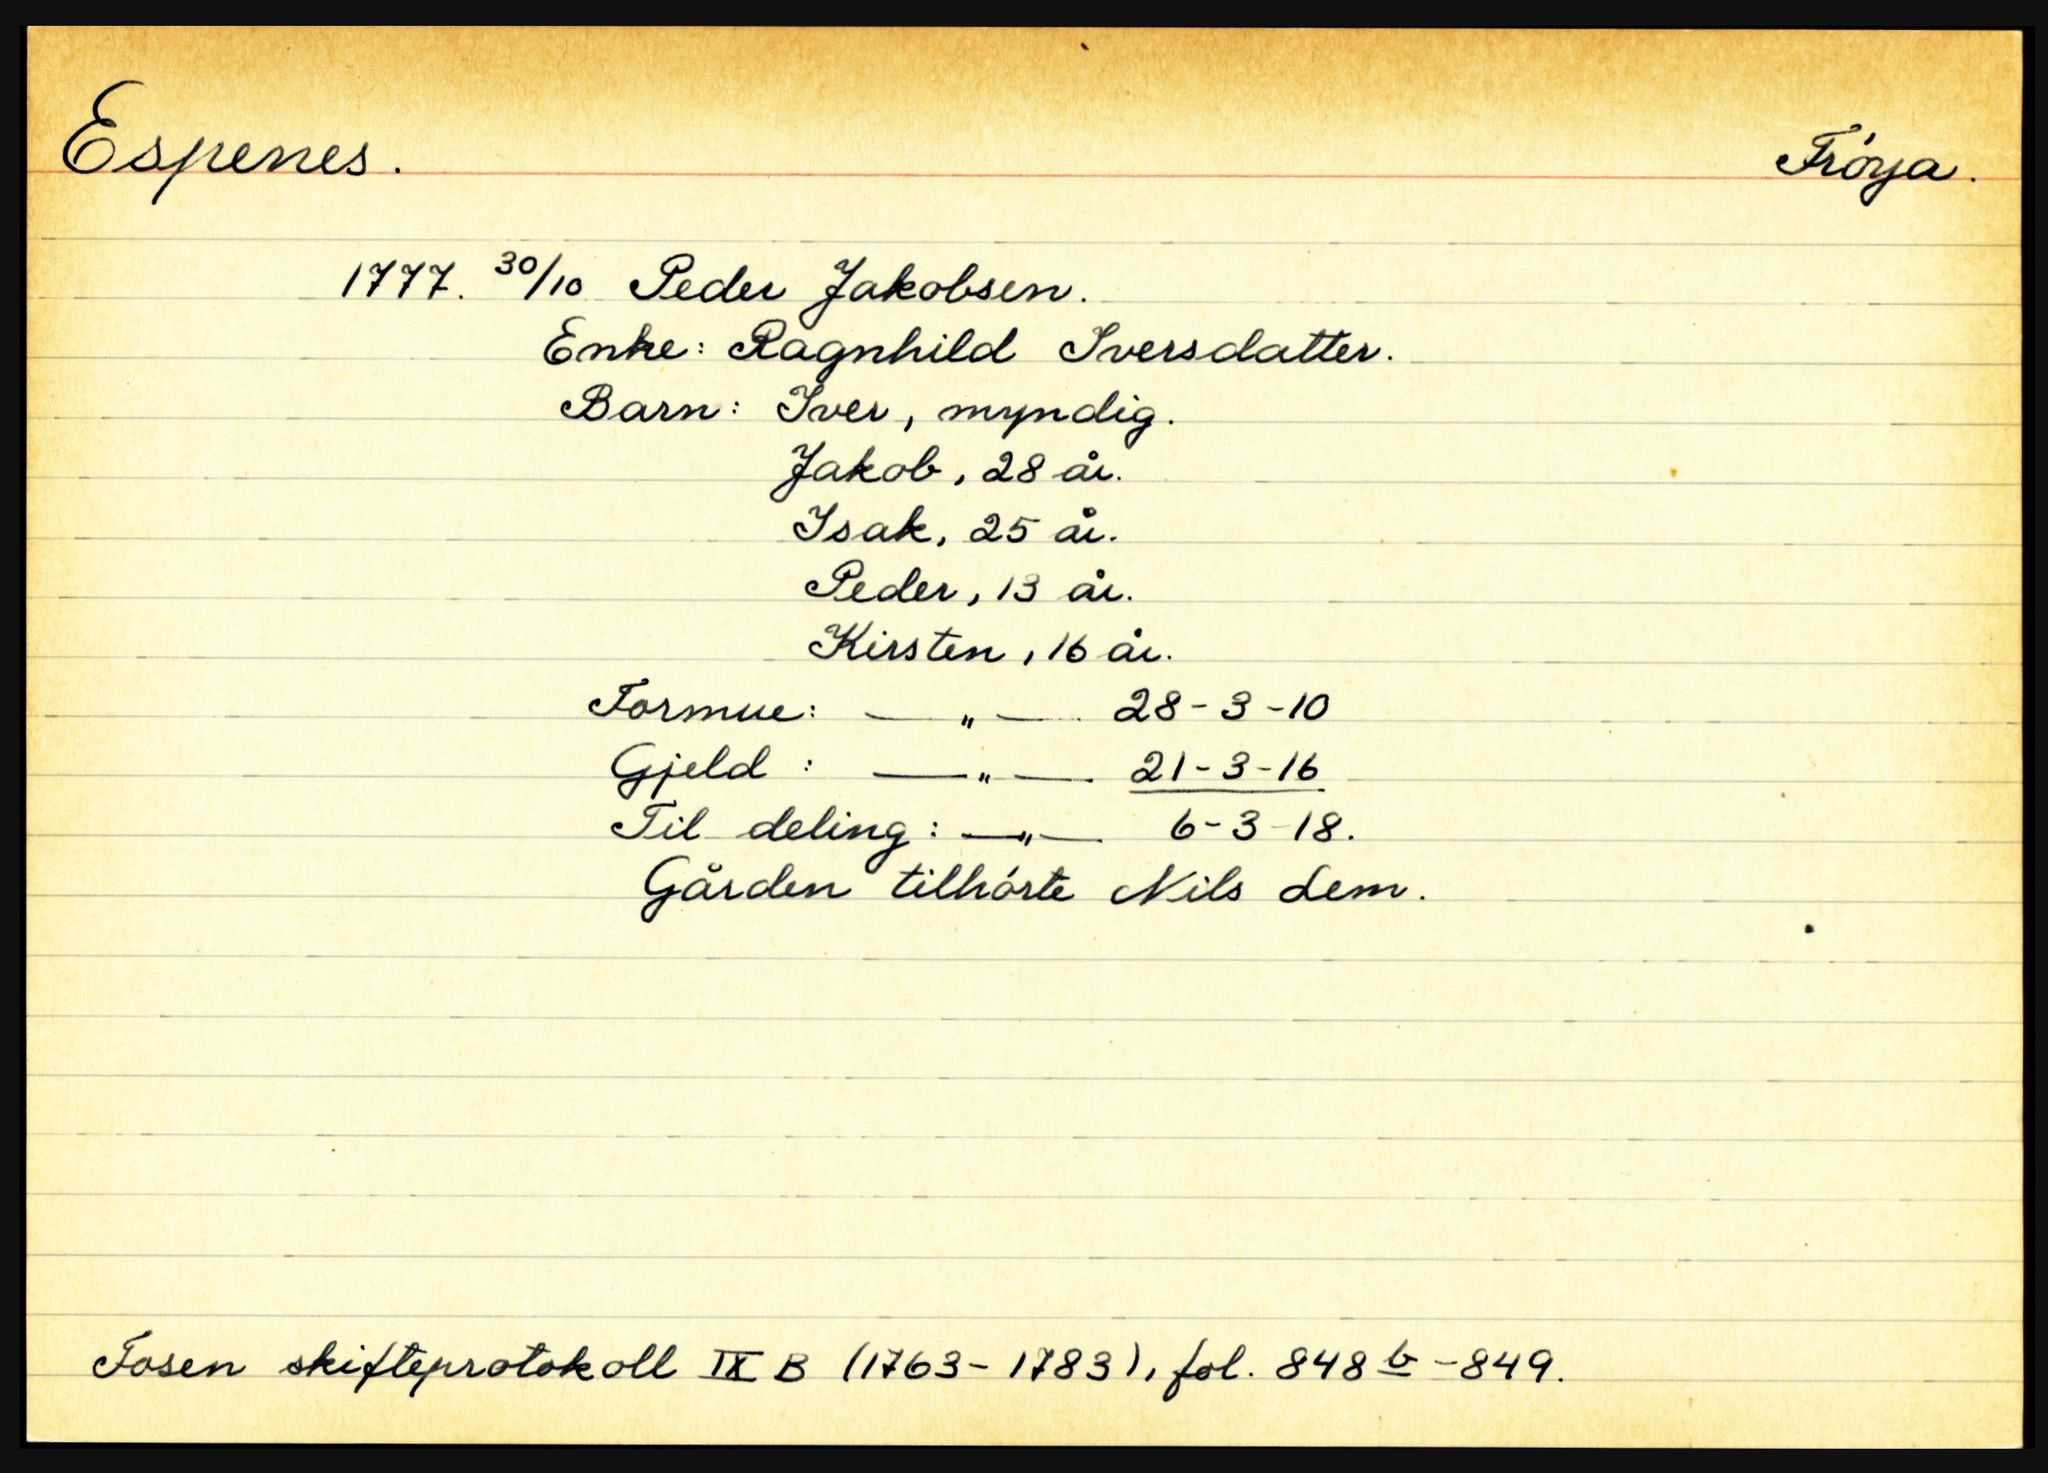 Espenes. Frøya.
1777. 30/10 Peder Jakobsen.
Enke: Ragnhild Iversdatter.
Barn: Iver, myndig.
Jakob, 28 år.
Isak, 25 år.
Peder, 13 år.
Kirsten, 16 år.
Formue: — „ — 28-3-10
Gjeld : — „ — 21-3-16
Til deling: — „ — 6-3-18.
Gården tilhørte Nils Lem.
Fosen skifteprotokoll IX B (1763-1783), fol. 848 b -849.